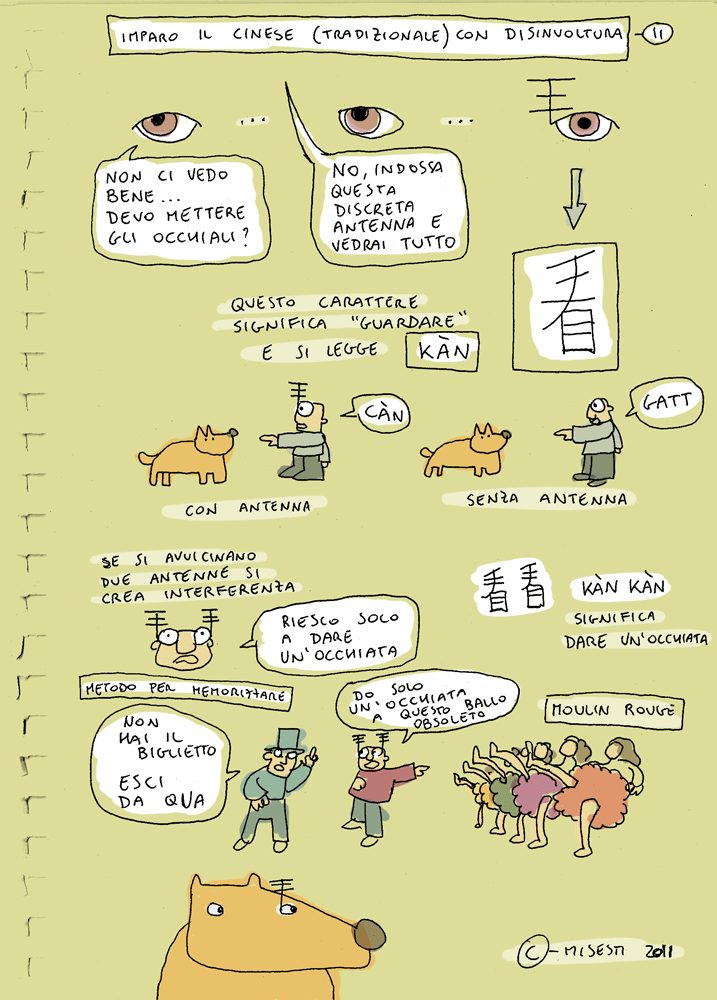 IMPARO IL CINESE (TRADIZIONALE) CON DISINVOLTURA - 11
...
...
NON CI VEDO
BENE...
DEVO METTERE
GLI OCCHIALI?
NO, INDOSSA
QUESTA
DISCRETA
ANTENNA E
VEDRAI TUTTO
看
QUESTO CARATTERE
SIGNIFICA "GUARDARE"
E SI LEGGE KÀN
CÀN
GATT
CON ANTENNA
SENZA ANTENNA
SE SI AVVICINANO
DUE ANTENNE SI
CREA INTERFERENZA
RIESCO SOLO
A DARE
UN'OCCHIATA
看看
KÀN KÀN
SIGNIFICA
DARE UN'OCCHIATA
METODO PER MEMORIZZARE
NON
HAI IL
BIGLIETTO
ESCI
DA QUA
DO SOLO
UN'OCCHIATA
A QUESTO BALLO
OBSOLETO
MOULIN ROUGE
© - MISESTI 2011